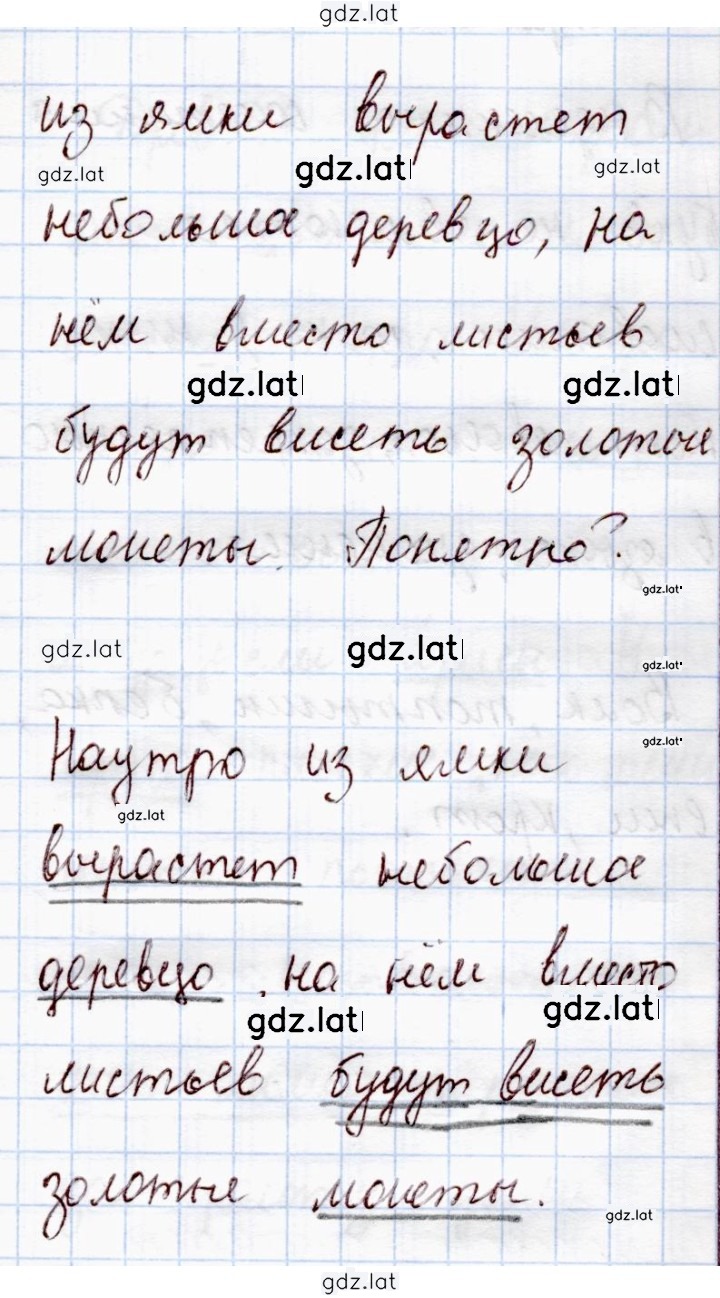 gdz.lat
из ямки вырастет
gdz.lat gdz.lat gdz.lat
небольша деревцо, на
нём вместо листьев
gdz.lat gdz.lat
будут висеть золотые
монеты. Понятно?
gdz.lat
gdz.lat gdz.lat gdz.lat
gdz.lat
Наутро из ямки
gdz.lat
вырастет небольшое
деревцо, на нём вместо
gdz.lat gdz.lat
листьев будут висеть
золотые монеты.
gdz.lat
gdz.lat